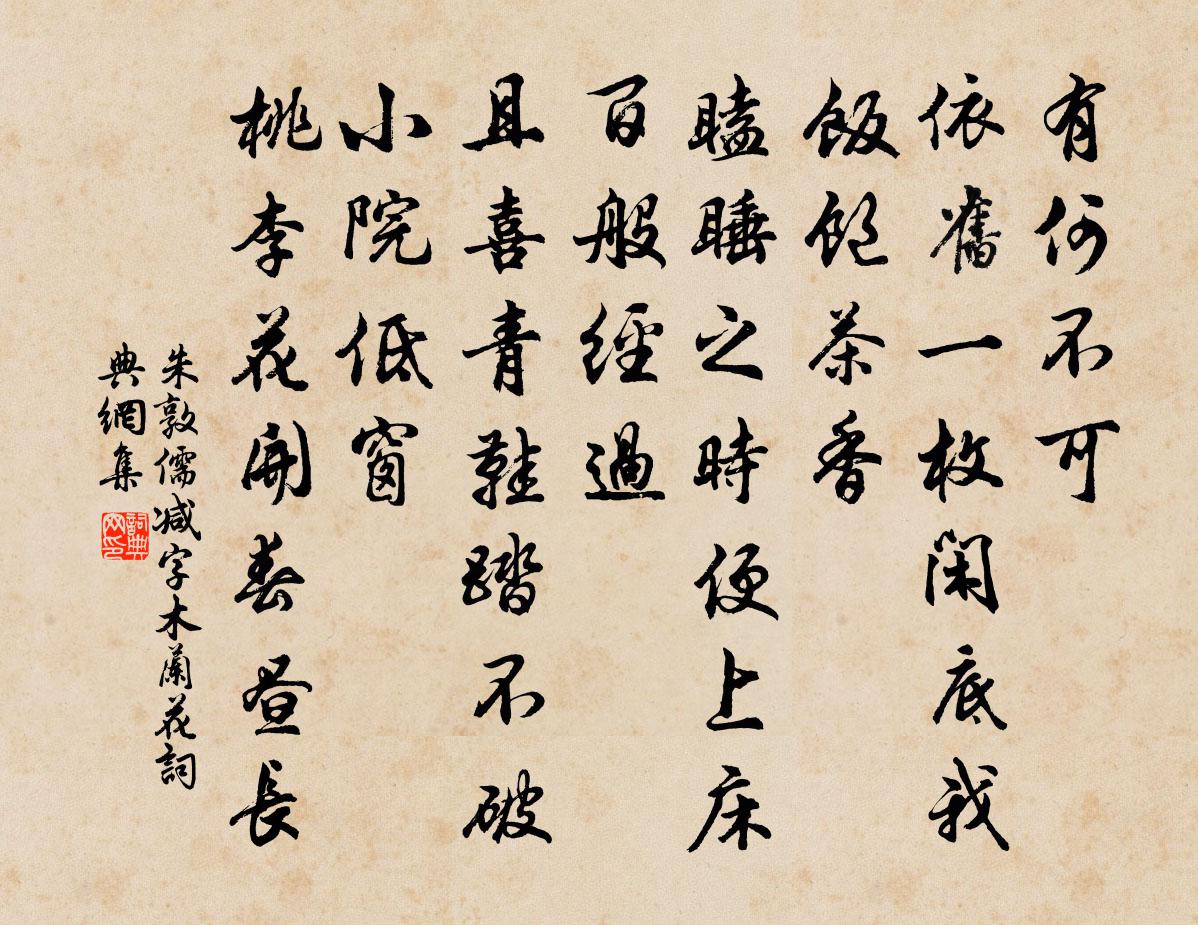 有何不可
依舊一枚閑底我
飯飽茶香
瞌睡之時便上床
百般經過
且喜青鞋踏不破
小院低窗
桃李花開春晝長
朱敦儒減字木蘭花詞
典網集
詞典網印